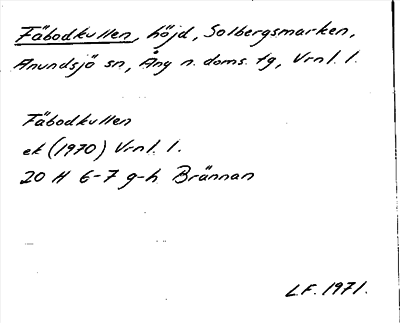 Fäbodkullen, höjd, Solbergsmarken,
Anundsjö sn, Ång n. doms. tg, Vrnl. l.
Fäbodkullen
ek (1970) Vrnl. l.
20 H 6-7 g-h Brännan
L.F. 1971.